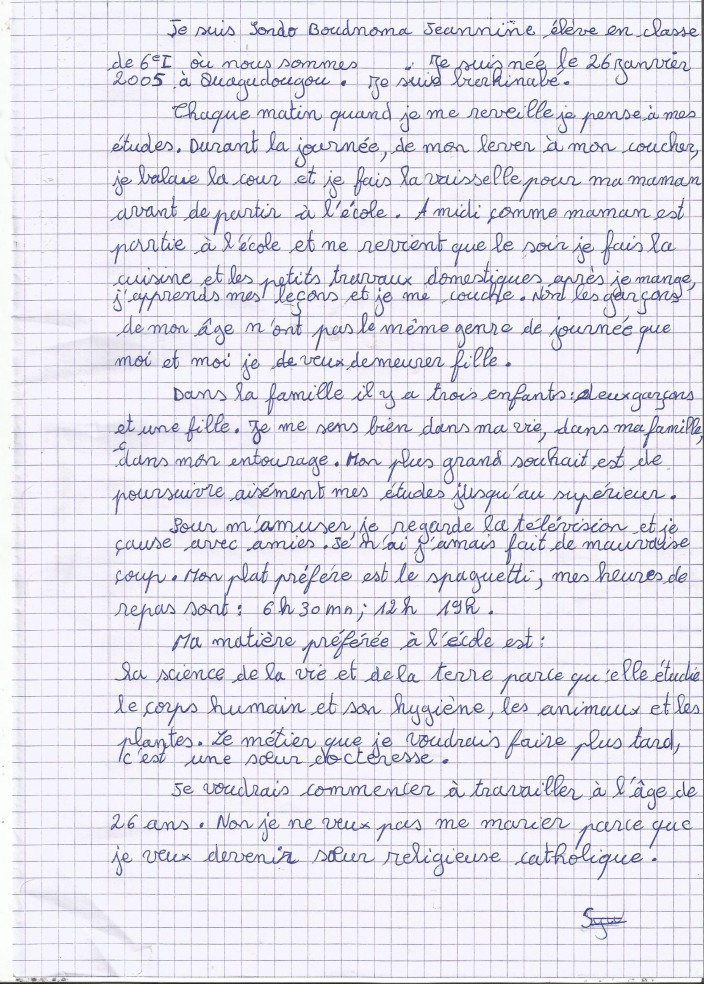 Je suis Sondo Boudnoma Jeannine élève en classe
de 6eI où nous sommes . Je suis née le 26 janvier
2005 à Ouagadougou. Je suis burkinabé.
Chaque matin quand je me reveille je pense à mes
études. Durant la journée, de mon lever à mon coucher,
je balaie la cour et je fais la vaisselle pour ma maman
avant de partir à l'école. A midi comme maman est
partie à l'école et ne revient que le soir je fais la
cuisine et les petits travaux domestiques après je mange,
j'apprends mes leçons et je me couche. Non les garçons
de mon âge n'ont pas le même genre de journée que
moi et moi je de veux demeurer fille.
Dans la famille il y a trois enfants : deux garçons
et une fille. Je me sens bien dans ma vie, dans ma famille,
dans mon entourage. Mon plus grand souhait est de
poursuivre aisément mes études jusqu'au supérieur.
Pour m'amuser je regarde la télévision et je
cause avec amies. Je n'ai jamais fait de mauvaise
coup. Mon plat préfère est le spaguetti ; mes heures de
repas sont : 6h30mn ; 12h 19h.
Ma matière préférée à l'école est :
la science de la vie et de la terre parce qu'elle étudie
le corps humain et son hygiène, les animaux et les
plantes. Le métier que je voudrais faire plus tard,
c'est une sœur docteresse.
Je voudrais commencer à travailler à l'âge de
26 ans. Non je ne veux pas me marier parce que
je veux devenir sœur religieuse catholique.